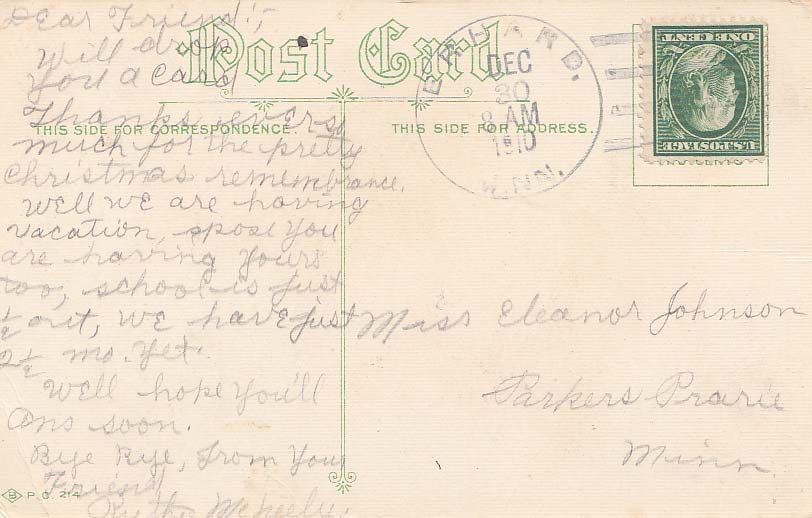 Post Card
THIS SIDE FOR CORRESPONDENCE.
THIS SIDE FOR ADDRESS.
Dear Friend:,
Will drop
you a card
Thanks ever so
much for the pretty
Christmas remembrance.
Well we are having
vacation, spose you
are having yours
too, school is just
½ out, we have just
2½ mo. yet.
Well hope you'll
ans soon.
Bye Bye, From Your
Friend
Ruth
P.C. 214
DEC
30
8 AM
1910
MINN.
U.S. POSTAGE
ONE CENT
Miss Eleanor Johnson
Parkers Prarie
Minn